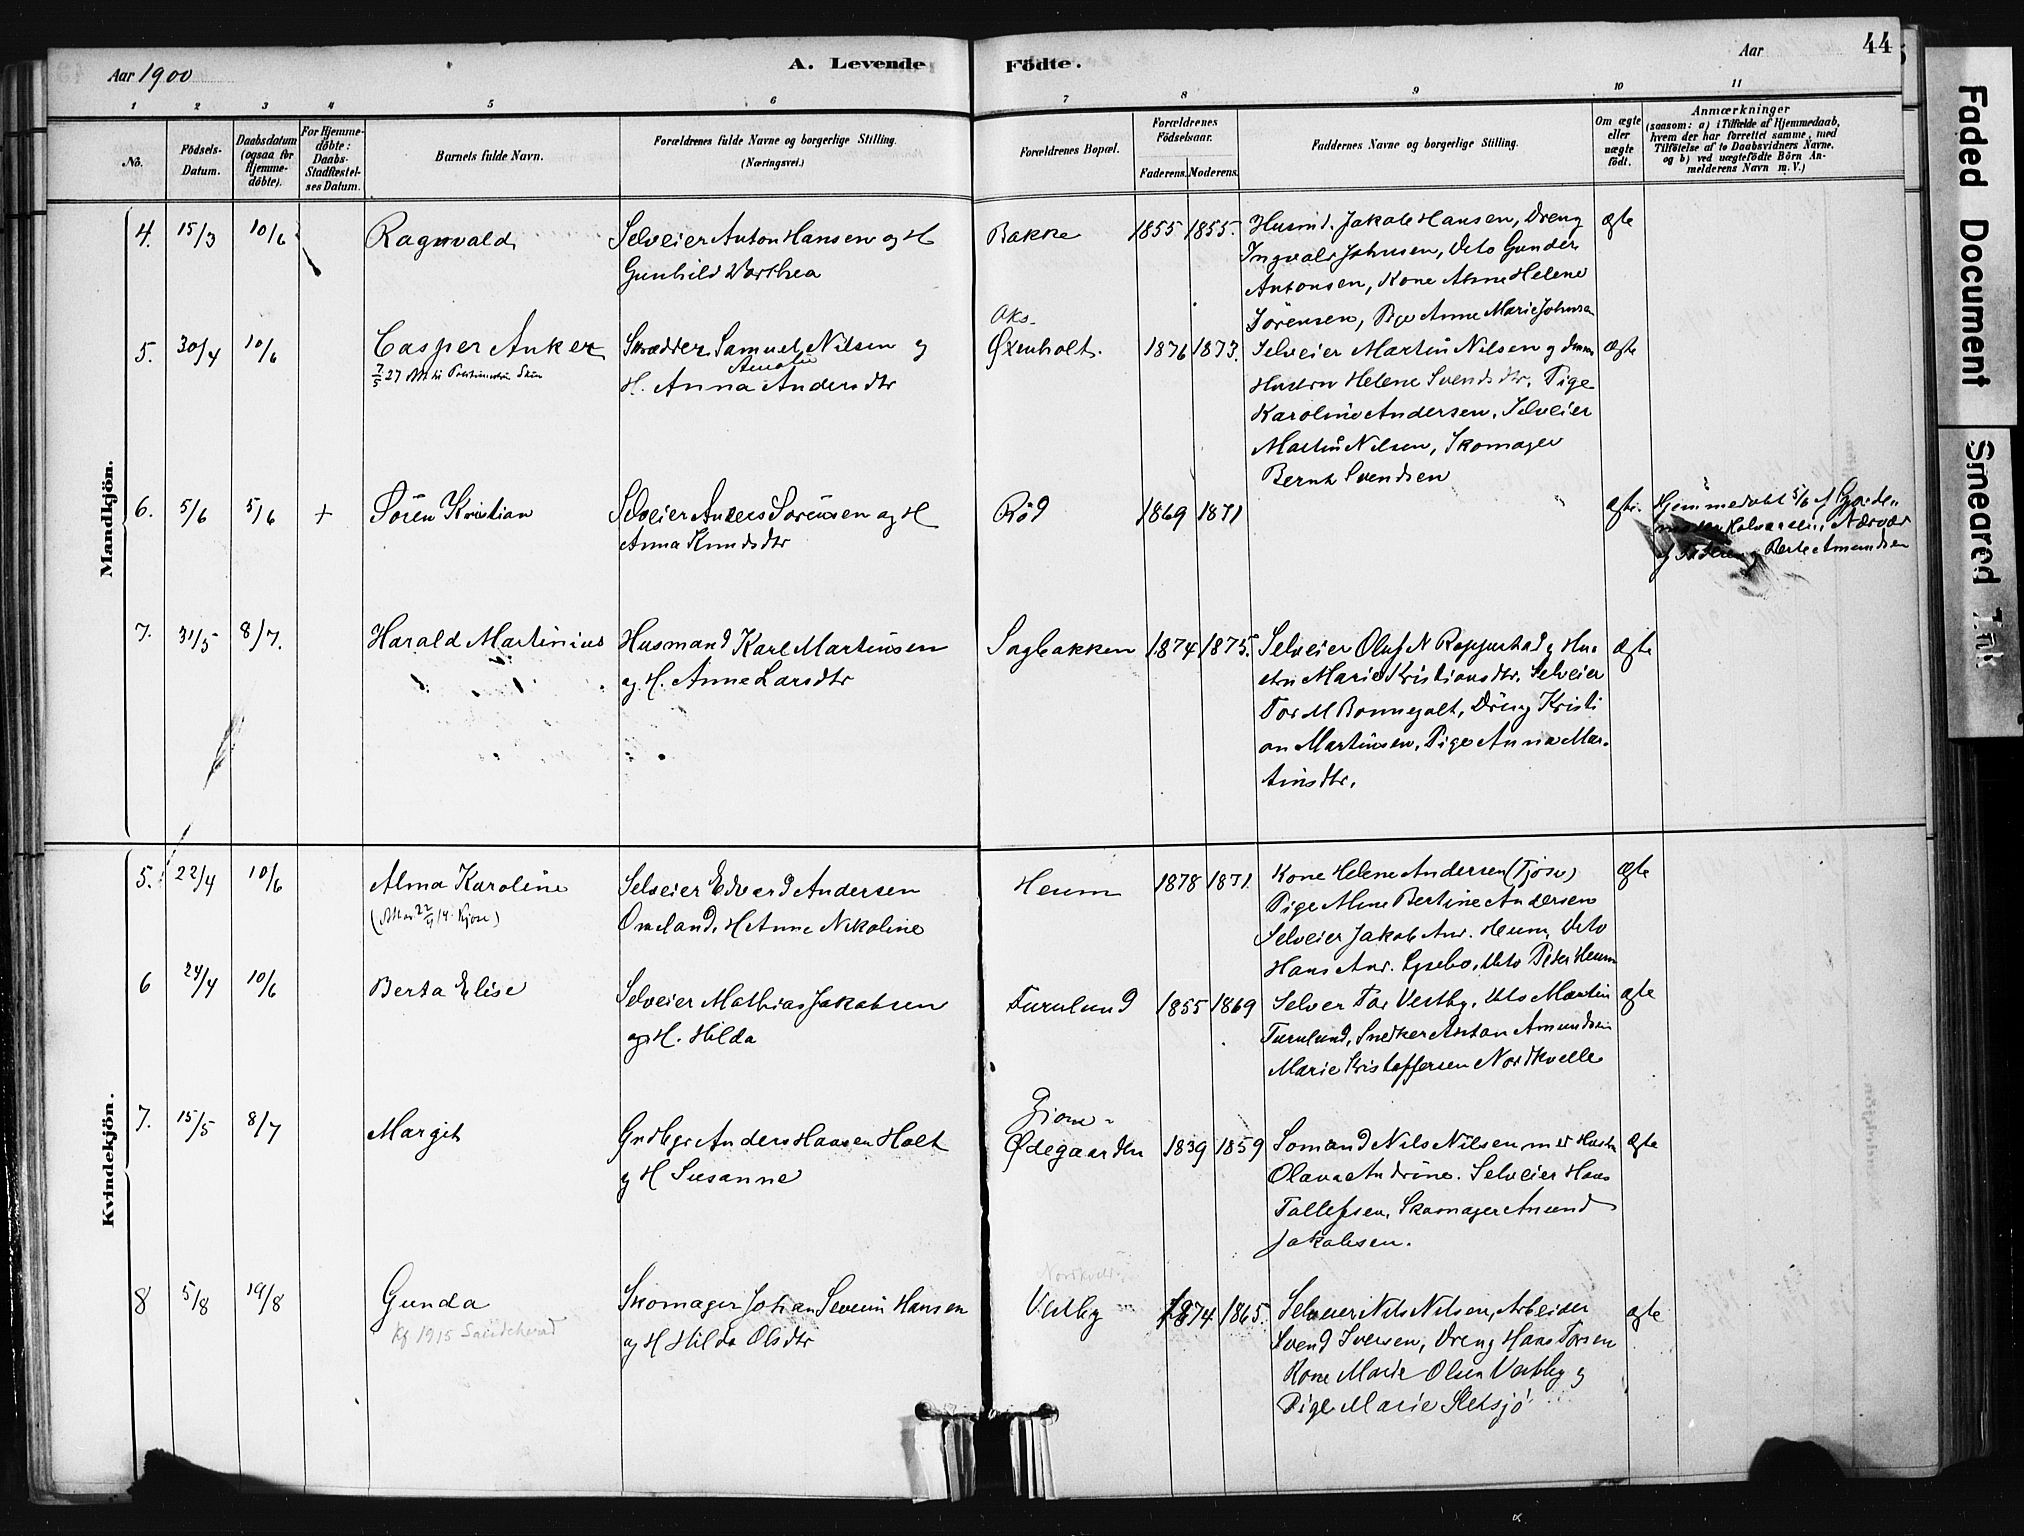 Aar 1900
A. Levende
Födte.
Aar
44
1 2 3 4 5 6 7 8 9 10 11
No.
Födsels-
Datum.
Daabsdatum
(ogsaa for
Hjemme-
döbte).
For Hjemme-
döbte:
Daabs-
Stadfæstel-
ses Datum.
Barnets fulde Navn.
Forældrenes fulde Navne og borgerlige Stilling.
(Næringsvei.)
Forældrenes Bopæl.
Forældrenes
Födselsaar.
Faderens. Moderens.
Faddernes Navne og borgerlige Stilling.
Om ægte
eller
uægte
födt.
Anmærkninger
(saasom: a) i Tilfælde af Hjemmedaab,
hvem der har forrettet samme, med
Tilföielse af to Daabsvidners Navne.
og b) ved uægtefödte Börn An-
melderens Navn m. V.)
Mandkjön.
4. 15/3 10/6 Ragnvald
Selveier Anton Hansen og H
Gunhild Dorthea
Bakke 1855 1855.
Husmd. Jakob Hansen, Dreng
Ingvald Johnsen, Dito Gunder
Antonsen, Kone Anne Helene
Sörensen, Pige Anne Marie Johnsen
ægte
5. 30/4 10/6 Casper Anker
Skrædder Samuel Nilsen og
Amalie
H. Anna Andersdtr
Oks-
Øxenholt. 1876 1873.
Selveier Martin Nilsen og dennes
Hustru Helene Svendsdtr, Pige
Karoline Andersen, Selveier
Martin Nilsen, Skomager
Bernt Svendsen
ægte
6. 5/6 5/6 + Sören Kristian
Selveier Anders Sörensen og H
Anna Knudsdtr
Röd 1869 1871
ægte.
Hjemmedöbt 5/6 af
Berte Amundsen
7. 31/5 8/7. Harald Martinius
Husmand Karl Martinsen
og H. Anne Larsdtr
Sagbakken 1874 1875.
Selveier Oluf N Roppestad og Hu-
stru Marie Kristiansdtr. Selveier
Tor M Bonnegolt, Dreng Kristi
an Martinsen, Pige Anna Mar-
tinsdtr.
ægte
Kvindekjön.
5. 22/4 10/6 Alma Karoline
Selveier Edvard Andersen
Omland, H Anne Nikoline
Heum 1878 1871.
Kone Helene Andersen (Tjöse)
Pige Alma Bertine Andersen
Selveier Jakob And. Heum, Dito
Hans And. Lysebo, Dito Peder Heum
ægte
6 24/4 10/6 Berta Elise
Selveier Mathias Jakobsen
og H. Hilda
Furulund 1855 1869
Selveier Tor Vestby, Dito Martin
Furulund, Snedker Anton Amundsen
Marie Kristoffersen Nordkvelle
ægte
7. 15/5 8/7 Margit
Grdbgr Anders Hansen Holt
og H Susanne
Ødegaarden 1839 1859
Sömand Nils Nilsen med Hustru
Olava Andrine. Selveier Hans
Tollefsen, Skomager Amund
Jakobsen.
ægte
8 5/8 19/8 Gunda
Kf 1915 Sandeherad
Skomager Johan Severin Hansen
og H Hilda Olsdtr
Vestby 1874 1865.
Selveier Nils Nilsen, Arbeider
Svend Iversen, Dreng Hans Torsen
Kone Marie Olsen Vestby og
Pige Marie Sletsjö
ægte
Faded Document
Smeared Ink